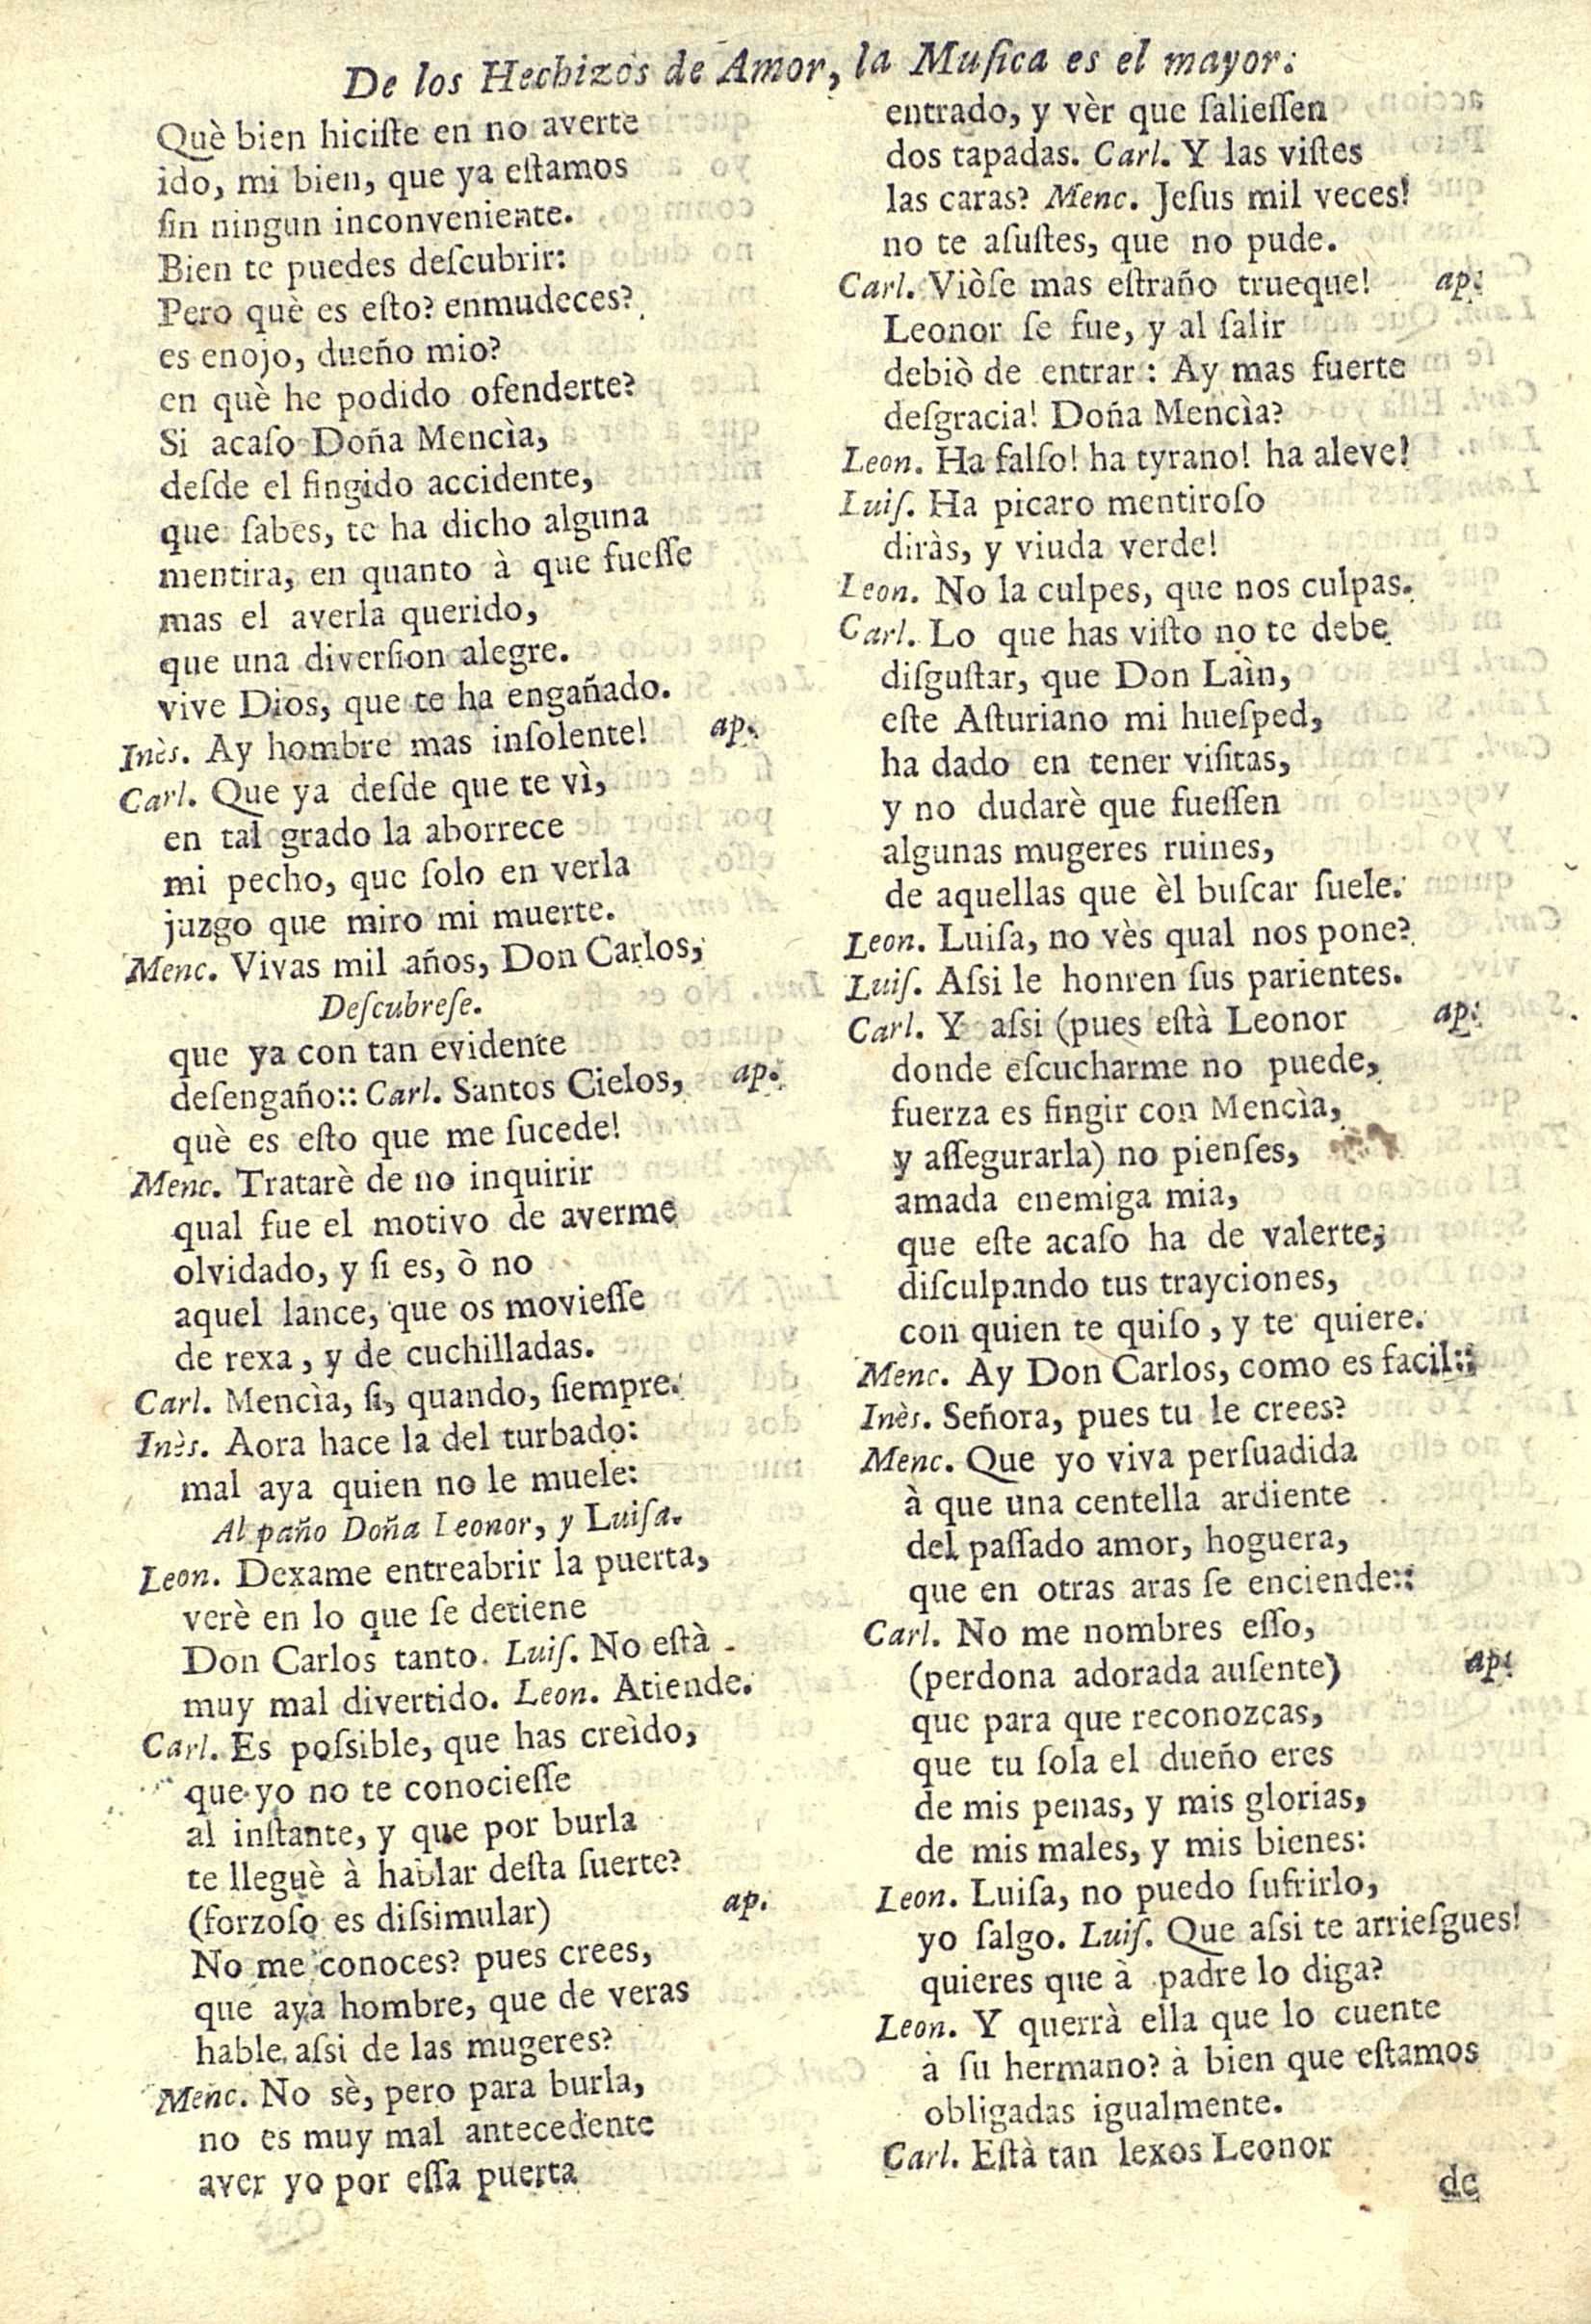 De los Hechizos de Amor, la Musica es el mayor:
Què bien hiciſte en no averte
ido, mi bien, que ya eſtamos
ſin ningun inconveniente.
Bien te puedes deſcubrir:
Pero què es eſto? enmudeces?
es enojo, dueño mio?
en què he podido ofenderte?
Si acaſo Doña Mencìa,
deſde el fingido accidente,
que ſabes, te ha dicho alguna
mentira, en quanto à que fueſſe
mas el averla querido,
que una diverſion alegre.
vive Dios, que te ha engañado.
Inès. Ay hombre mas inſolente! ap.
Carl. Que ya deſde que te vì,
en tal grado la aborrece
mi pecho, que ſolo en verla
juzgo que miro mi muerte.
Menc. Vivas mil años, Don Carlos,
Deſcubreſe.
que ya con tan evidente
deſengaño:: Carl. Santos Cielos, ap.
què es eſto que me ſucede!
Menc. Tratarè de no inquirir
qual fue el motivo de averme
olvidado, y ſi es, ò no
aquel lance, que os movieſſe
de rexa, y de cuchilladas.
Carl. Mencìa, ſi, quando, ſiempre.
Inès. Aora hace la del turbado:
mal aya quien no le muele:
Al paño Doña Leonor, y Luiſa.
Leon. Dexame entreabrir la puerta,
verè en lo que ſe detiene
Don Carlos tanto. Luiſ. No eſtà
muy mal divertido. Leon. Atiende.
Carl. Es poſsible, que has creìdo,
que yo no te conocieſſe
al inſtante, y que por burla
te lleguè à hablar deſta ſuerte?
(forzoſo es diſsimular) ap.
No me conoces? pues crees,
que aya hombre, que de veras
hable aſsi de las mugeres?
Menc. No sè, pero para burla,
no es muy mal antecedente
aver yo por eſſa puerta
entrado, y vèr que ſalieſſen
dos tapadas. Carl. Y las viſtes
las caras? Menc. Jeſus mil veces!
no te aſuſtes, que no pude.
Carl. Viòſe mas eſtraño trueque! ap.
Leonor ſe fue, y al ſalir
debiò de entrar: Ay mas fuerte
deſgracia! Doña Mencìa?
Leon. Ha falſo! ha tyrano! ha aleve!
Luiſ. Ha picaro mentiroſo
diràs, y viuda verde!
Leon. No la culpes, que nos culpas.
Carl. Lo que has viſto no te debe
diſguſtar, que Don Laìn,
eſte Aſturiano mi hueſped,
ha dado en tener viſitas,
y no dudarè que fueſſen
algunas mugeres ruines,
de aquellas que èl buſcar ſuele.
Leon. Luiſa, no vès qual nos pone?
Luiſ. Aſsi le honren ſus parientes.
Carl. Y aſsi (pues eſtà Leonor ap.
donde eſcucharme no puede,
fuerza es fingir con Mencìa,
y aſſegurarla) no pienſes,
amada enemiga mia,
que eſte acaſo ha de valerte,
diſculpando tus trayciones,
con quien te quiſo, y te quiere.
Menc. Ay Don Carlos, como es facil::
Inès. Señora, pues tu le crees?
Menc. Que yo viva perſuadida
à que una centella ardiente
del paſſado amor, hoguera,
que en otras aras ſe enciende::
Carl. No me nombres eſſo,
(perdona adorada auſente) ap.
que para que reconozcas,
que tu ſola el dueño eres
de mis penas, y mis glorias,
de mis males, y mis bienes:
Leon. Luiſa, no puedo ſufrirlo,
yo ſalgo. Luiſ. Que aſsi te arrieſgues!
quieres que à padre lo diga?
Leon. Y querrà ella que lo cuente
à ſu hermano? à bien que eſtamos
obligadas igualmente.
Carl. Eſtà tan lexos Leonor
de